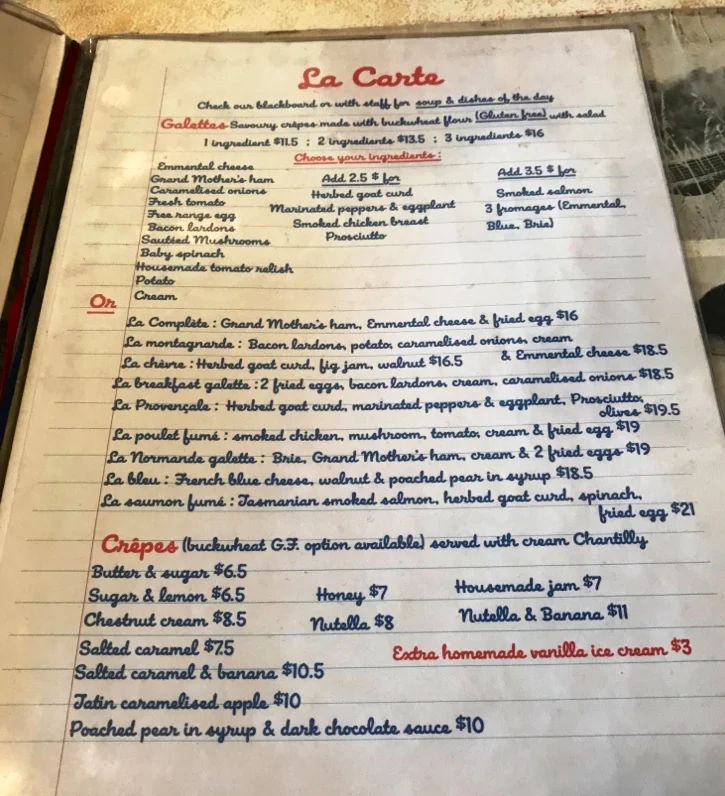 La Carte
Check our blackboard or with staff for soup & dishes of the day
Galettes Savoury crêpes made with buckwheat flour (Gluten free) with salad
1 ingredient $11.5 ; 2 ingredients $13.5 ; 3 ingredients $16
Choose your ingredients :
Emmental cheese
Grand Mother's ham
Caramelised onions
Fresh tomato
Free range egg
Bacon lardons
Sautéed Mushrooms
Baby spinach
Housemade tomato relish
Potato
Cream
Add 2.5 $ for
Herbed goat curd
Marinated peppers & eggplant
Smoked chicken breast
Prosciutto
Add 3.5 $ for
Smoked salmon
3 fromages (Emmental,
Blue, Brie)
Or
La Complète : Grand Mother's ham, Emmental cheese & fried egg $16
La montagnarde : Bacon lardons, potato, caramelised onions, cream
& Emmental cheese $18.5
La chèvre : Herbed goat curd, fig jam, walnut $16.5
La breakfast galette : 2 fried eggs, bacon lardons, cream, caramelised onions $18.5
La Provençale : Herbed goat curd, marinated peppers & eggplant, Prosciutto,
olives $19.5
La poulet fumé : smoked chicken, mushroom, tomato, cream & fried egg $19
La Normande galette : Brie, Grand Mother's ham, cream & 2 fried eggs $19
La bleu : French blue cheese, walnut & poached pear in syrup $18.5
La saumon fumé : Tasmanian smoked salmon, herbed goat curd, spinach,
fried egg $21
Crêpes (buckwheat G.F. option available) served with cream Chantilly
Butter & sugar $6.5
Sugar & lemon $6.5
Chestnut cream $8.5
Salted caramel $7.5
Salted caramel & banana $10.5
Tatin caramelised apple $10
Poached pear in syrup & dark chocolate sauce $10
Honey $7
Nutella $8
Housemade jam $7
Nutella & Banana $11
Extra homemade vanilla ice cream $3